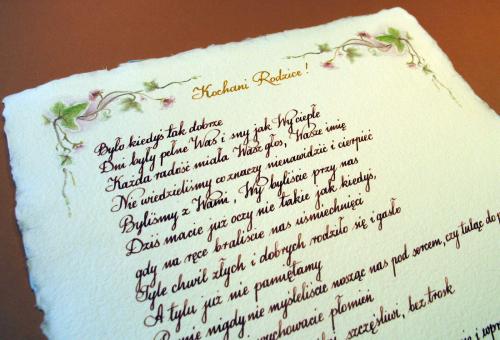 Kochani Rodzice !
Było kiedyś tak dobrze
Dni były pełne Was i sny jak Wy ciepłe
Każda radość miała Wasz głos, Wasze imię
Nie wiedzieliśmy co znaczy nienawidzić i cierpieć
Byliśmy z Wami, Wy byliście przy nas
Dziś macie już oczy nie takie jak kiedyś,
gdy na ręce braliście nas uśmiechnięci
Tyle chwil złych i dobrych rodziło się i gasło
A tylu już nie pamiętamy
nigdy nie myśleliście nosząc nas pod sercem, czy tuląc do
wychowacie płomień
szczęśliwi, bez trosk